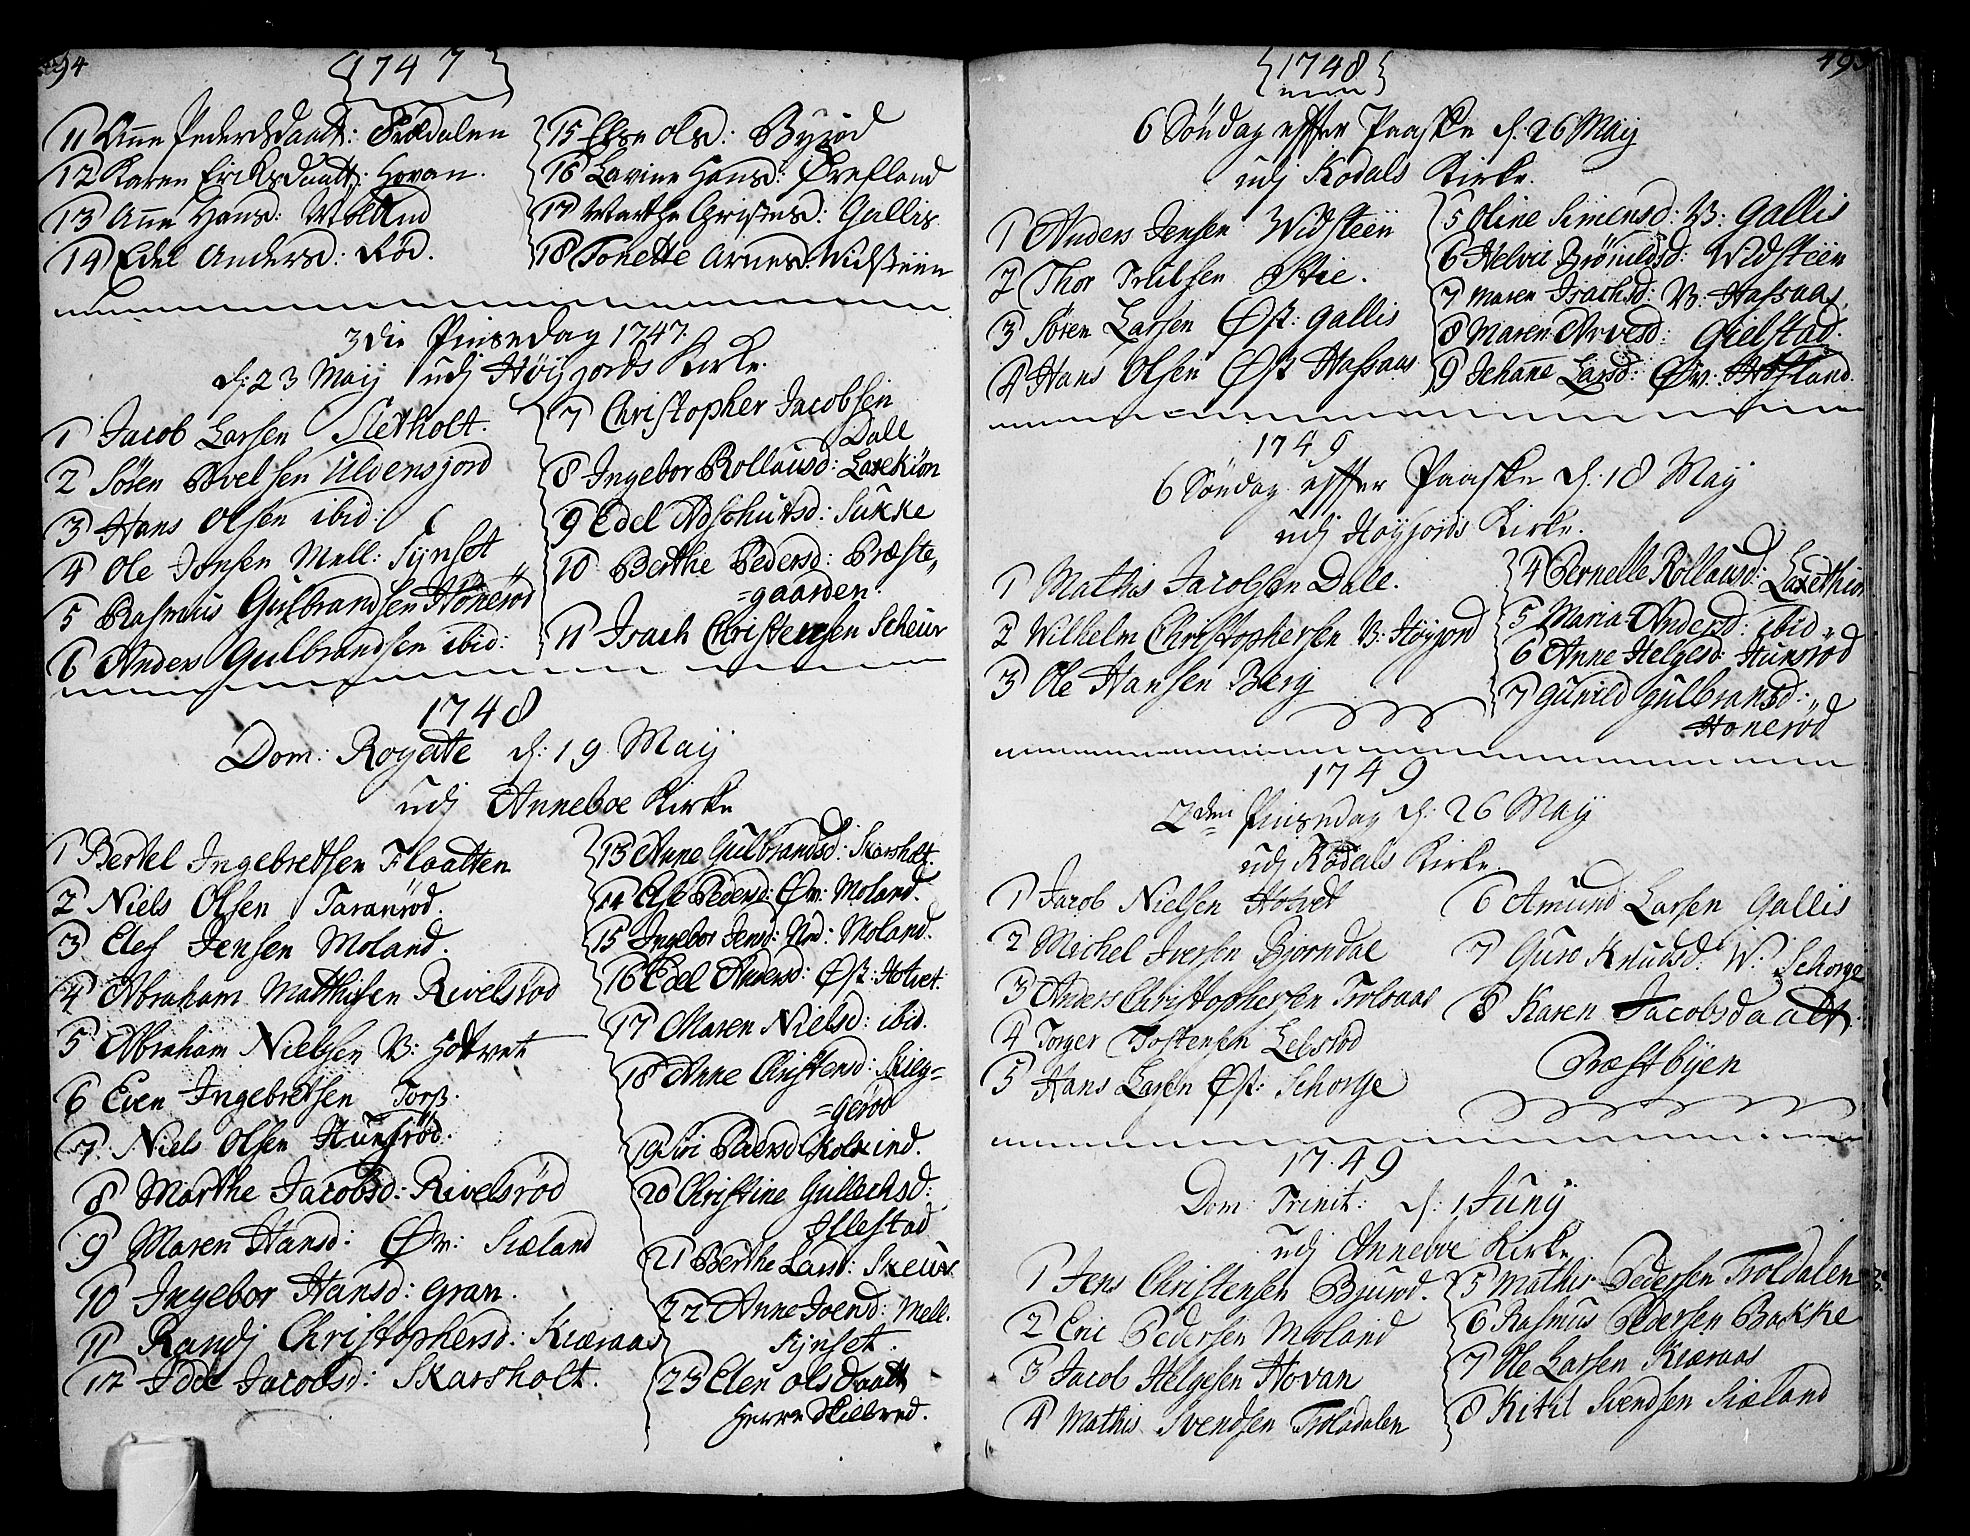 494
1747
11 Anne Pedersdaatt: Trældalen
12 Karen Eriksdaatt: Hovan.
13 Anne Hansd: Moland
14 Edel Andersd: Rød.
15 Else Olsd: Byrød
16 Lavine Hansd: Ørefland
17 Marthe Christensd: Gallis
18 Tonette Arnesd: Widsteen
3die Pinsedag 1747
d: 23 Maij udj Høijjords Kirke.
1 Jacob Larsen Sletholt.
2 Søren Povelsen Ulvensjord
3 Hans Olsen ibid:
4 Ole Jonsen Mell: Synset
5 Rasmus Gulbrandsen Hönerød
6 Anders Gulbrandsen ibid:
7 Christopher Jacobsen
Dale
8 Ingebor Rollausd: Laxekiön
9 Edel Adschutsd: Sukke
10 Berthe Pedersd: Præste„
=gaarden.
11 Isach Christensen Scheur
1748
Dom: Rogate d: 19 Maij
udj Anneboe Kirke
1 Bertel Ingebretsen Flaatten
2 Niels Olsen Taranrød.
3 Elef Jensen Moland.
4 Abraham Matthisen Rivelsrød
5 Abraham Nielssen V: Hotvet
6 Even Ingebretsen Torp.
7 Niels Olsen Hunsrød.
8 Marthe Jacobsd: Rivelsrød
9 Maren Hansd: Øv: Siæland
10 Ingebor Hansd: Gran.
11 Randj Christophersd: Kiæraas
12 Idde Jacobsd: Skarsholt.
13 Anne Gulbrandsd: Skarsholt.
14 Else Pedersd: Øv: Moland.
15 Ingebor Jensd: Nd: Moland.
16 Edel Andersd: Øst: Hotvet.
17 Maren Nielsd: ibid.
18 Anne Christensd: Skieg=
=gerød
19 Siri Pedersd Kolkind.
20 Christine Gullechsd:
Illestad
21 Berthe Larsd: Skeur
22 Anne Joensd: Mell.
Synset.
23 Elen Olsdaatt
Herre Skilbred.
495
1748
6 Söndag effter Paaske d: 26 Maij
udj Kodals Kirke.
1 Anders Jensen Widsteen
2 Thor Truelsen Stie.
3 Søren Larsen Øst: Gallis
4 Hans Olsen Øst Hassaas
5 Oline Simensd: V: Gallis
6 Helvic Brönildsd: Widsteen
7 Maren Isachsd: V: Hassaas.
8 Maren Arvesd: Gielstad.
9 Johane Larsd: Øv: Hasland.
1749
6 Söndag effter Paaske d: 18 Maij
udj Høyjords Kirke.
1 Mathis Jacobsen Dale.
2 Wilhelm Christophersen V: Høyjord
3 Ole Hansen Berg
4 Pernelle Rollausd: Laxekiön
5 Maria Andersd: ibid
6 Anne Helgesd: Hunsrød
7 Gunild Gulbransd:
Honerød
1749
2den Pinsedag d: 26 Maij
udj Kodals Kirke
1 Jacob Nielsen Hotvet
2 Michel Iversen Bjorndal
3 Anders Christophersen Trolsaas
4 Torger Tostensen Lelsrod
5 Hans Larsen Øst: Schorge
6 Amund Larsen Gallis
7 Guro Knudsd: W: Schorge
8 Karen Jacobsdaatt.
Præstbyen
1749
Dom: Trinit: d: 1 Junij
udj Anneboe Kirke.
1 Jens Christensen Bjurod.
2 Eric Pedersen Moland
3 Jacob Helgesen Hovan
4 Mathis Svendsen Troldalen
5 Mathis Pedersen Troldalen
6 Rasmus Pedersen Bakke
7 Ole Larsen Kiæraas
8 Kitil Svendsen Siæland